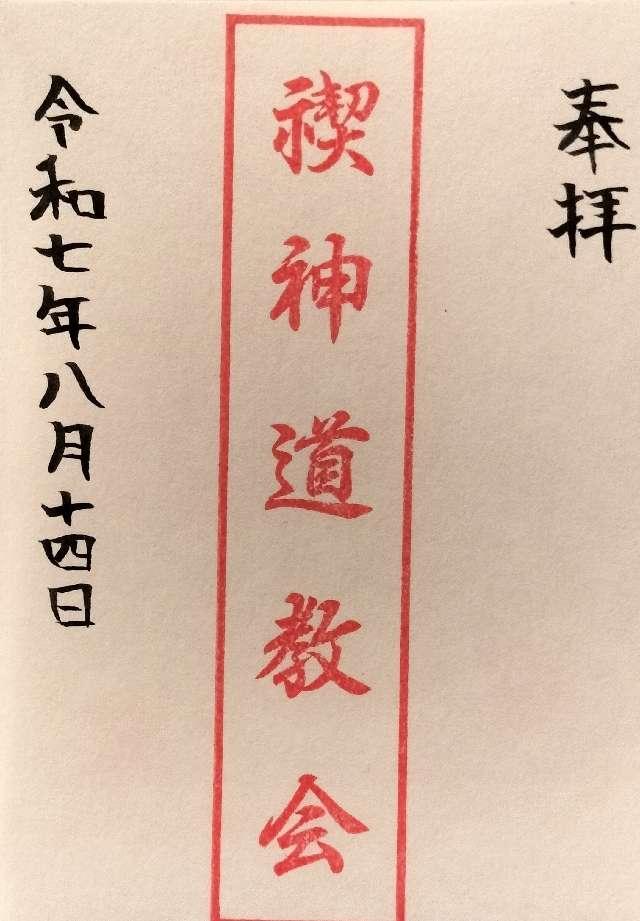 奉拝
禊神道教会
令和七年八月十四日